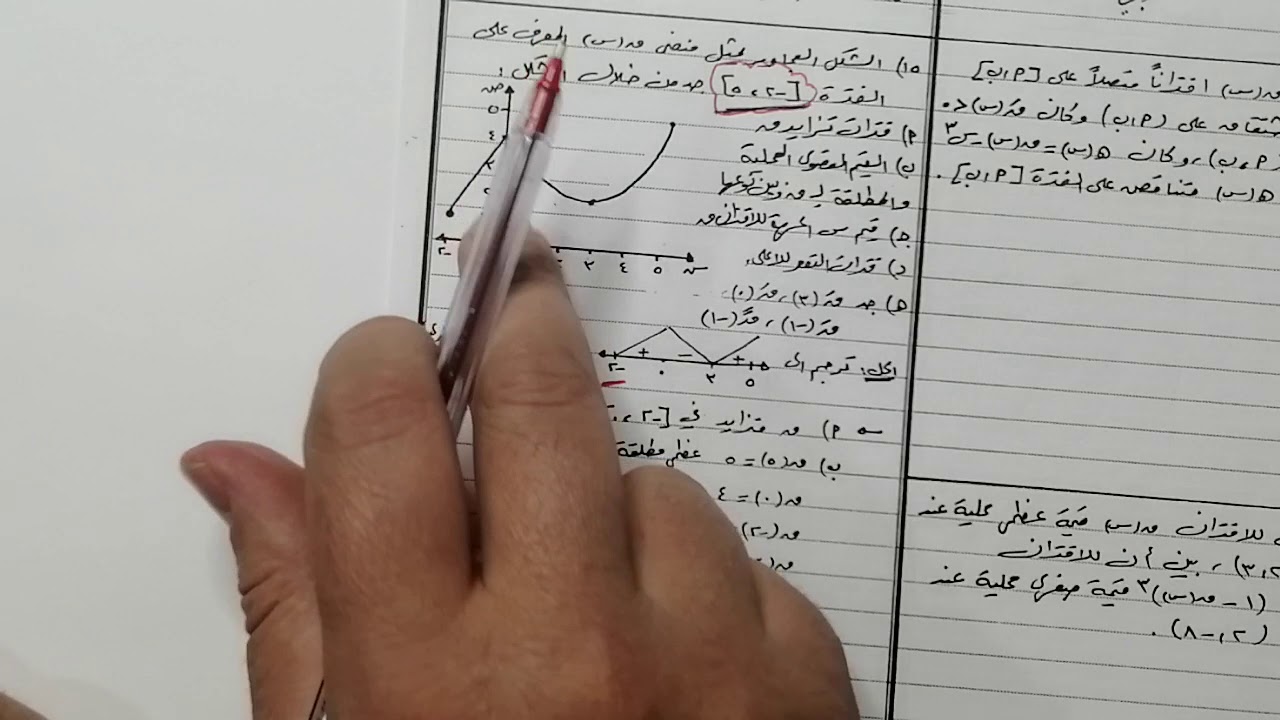 ق(س) اقتراناً متصلاً على [أ، ب]
أ، ب)، وكان ه(س) = ق(س) - س٣
ه(س) متناقص على الفترة [أ، ب].
للاقتران ق(س) قيمة عظمى محلية عند
٢، ٣)، بين أن للاقتران
(١ - ق(س))٣ قيمة صغرى محلية عند
(٢، -٨).
١٥) الشكل المجاور يمثل منحنى ق(س) المعرف على
الفترة [-٢، ٥] جد من خلال الشكل:
أ) فترات تزايد ق
ب) القيم القصوى المحلية
والمطلقة لـ ق وبين نوعها
ج) قيم س الحرجة للاقتران ق
د) فترات التقعر للأعلى
ه) جد قَ(٣)، قَ(٠)،
قَ(-١)، قً(-١)
ص
٥
٤
٣
-٢
٣ ٤ ٥ س
الحل: نرجع الى
+ - +
-٢ ٠ ٣ ٥
أ) ق متزايد في [-٢، ٠
ب) ق(٥) = ٥ عظمى مطلقة
ق(٠) = ٤
ق(-٢) =